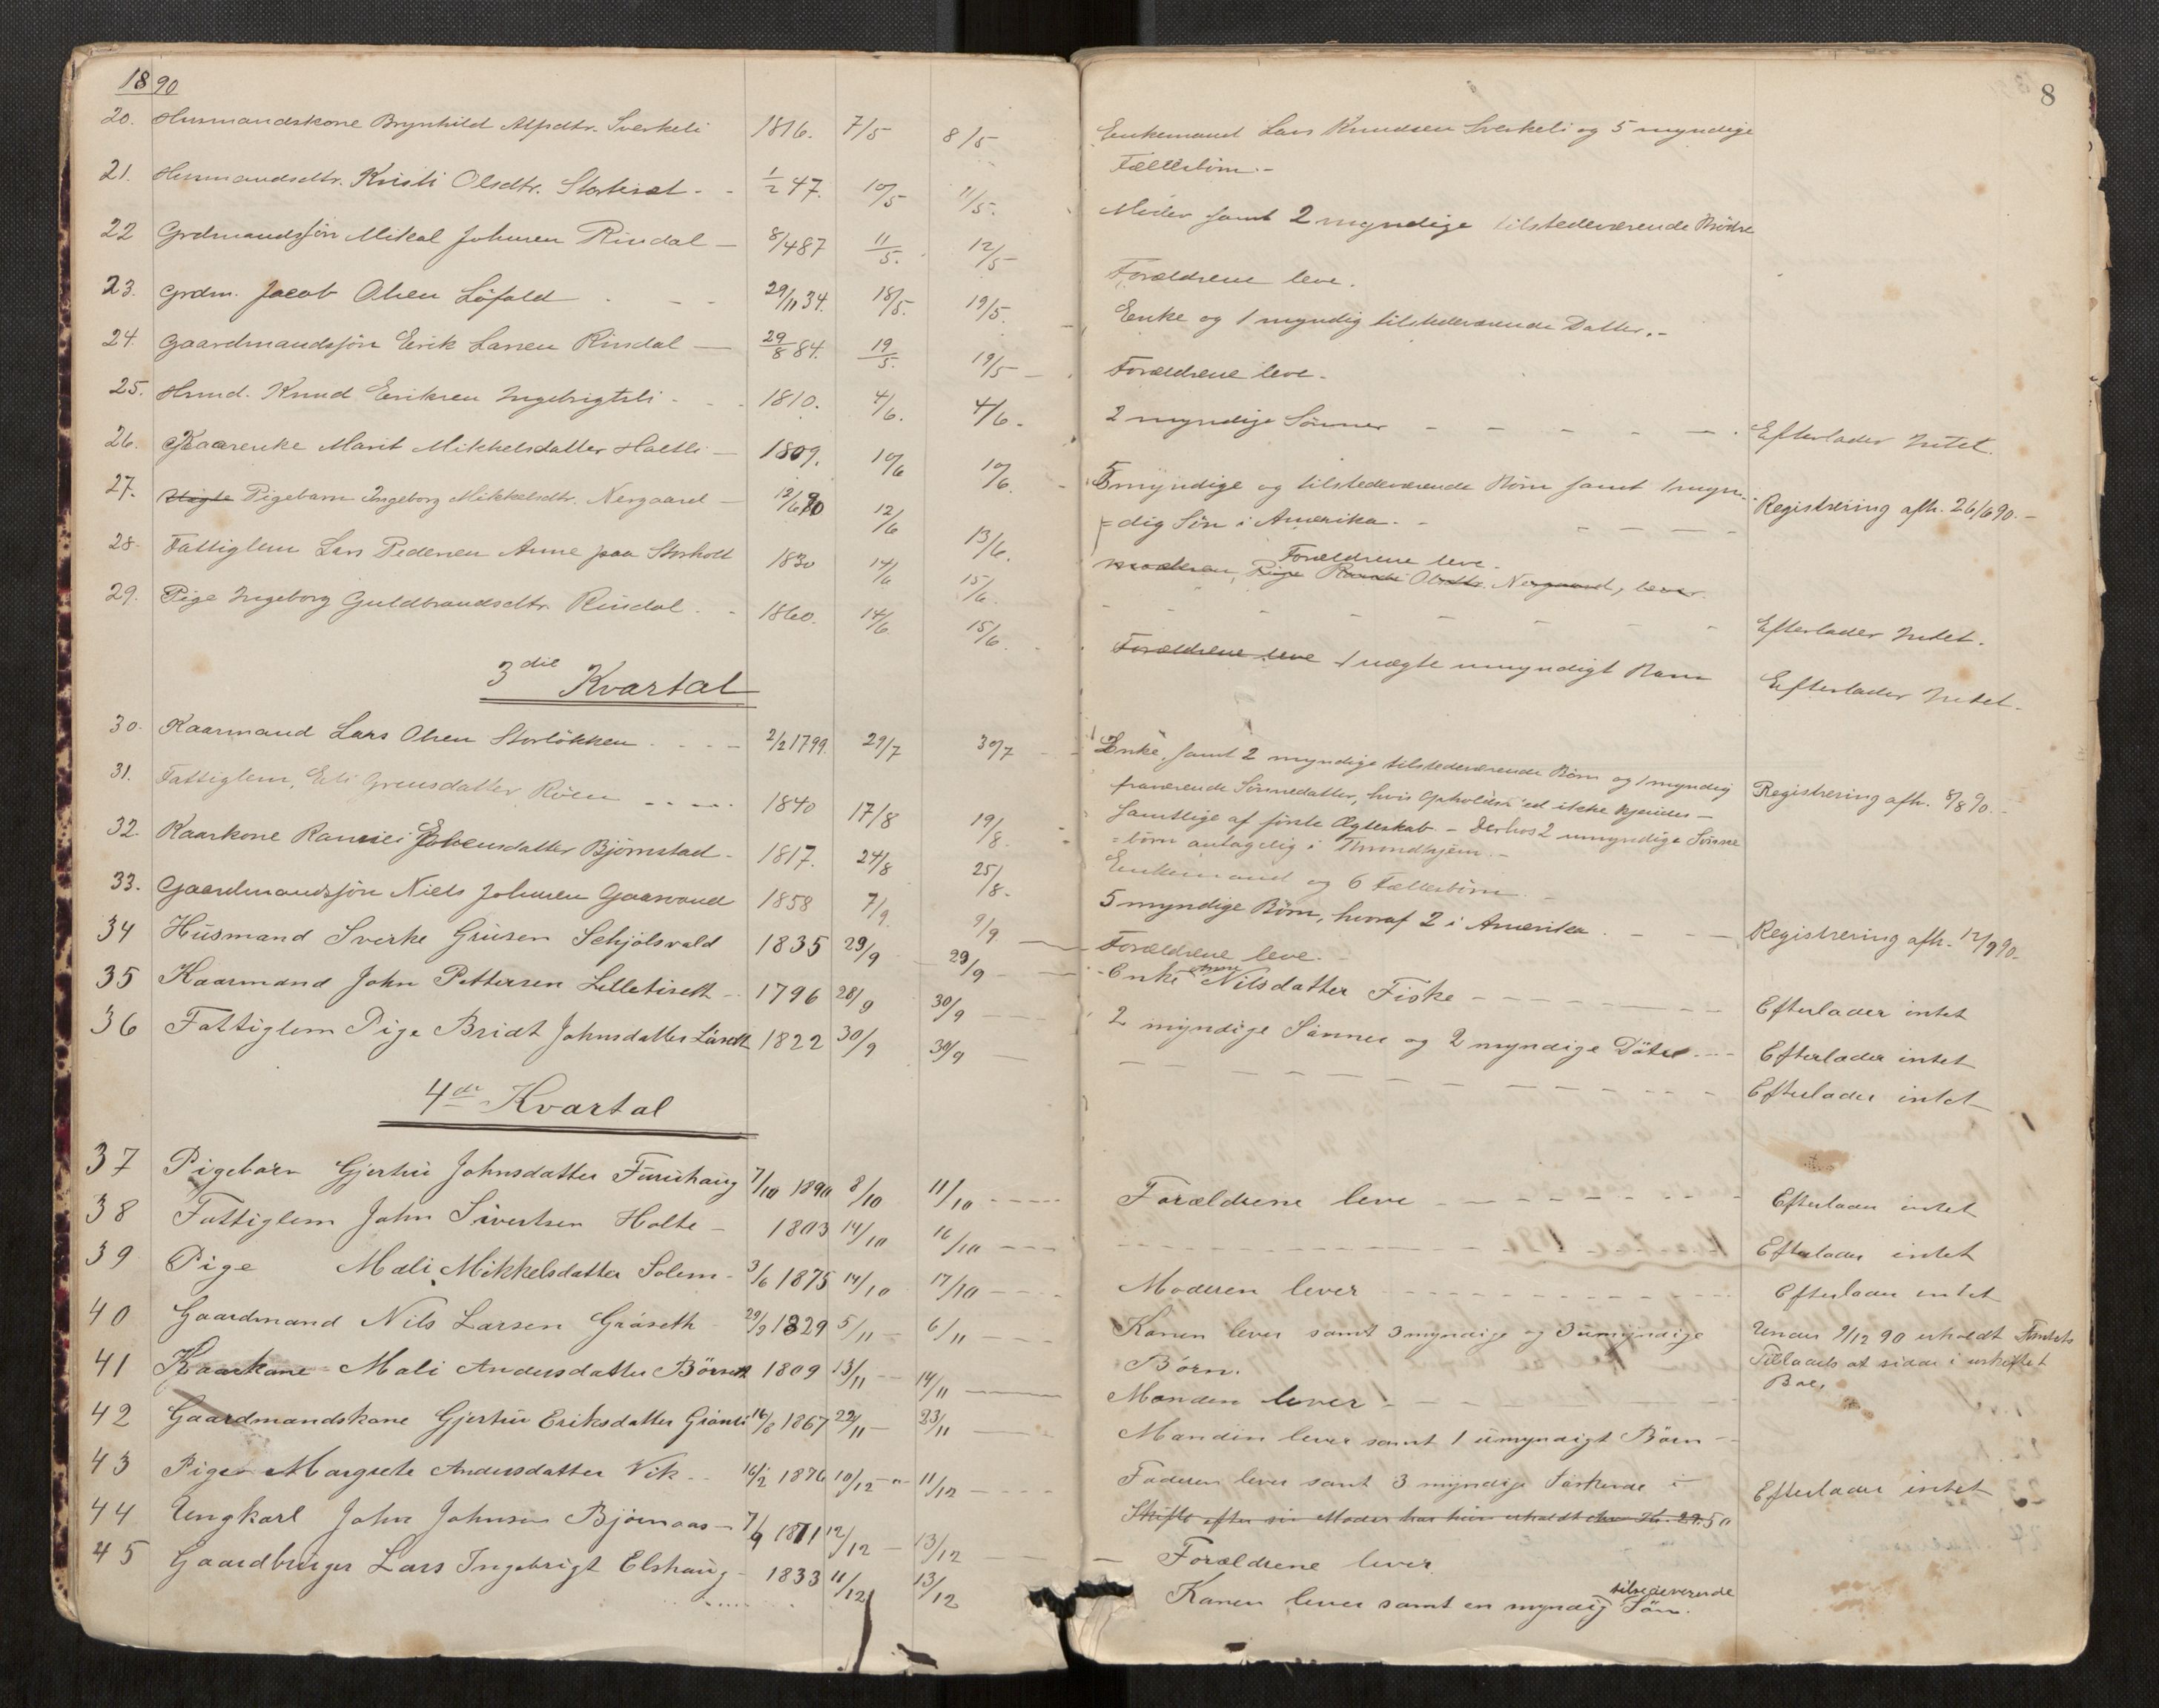 1890
20. Husmandskone Brynhild Alfsdtr. Sverkeli 1816. 7/5 8/5
21. Husmandsdtr. Kristi Olsdtr. Stortiset - - 1/2 47. 10/5 11/5.
22 Grdmandssøn Mikal Johnsen Rindal — 8/4 87 11/5. 12/5
23. Grdm. Jacob Olsen Löfald - - 29/11 34. 18/5. 19/5.
24. Gaardmandssøn Erik Larsen Rindal — 29/8 84. 19/5. 19/5
25. Hmd. Knud Eriksen Ingebrigtsli - - 1810. 4/6. 4/6.
26. Kaarenke Marit Mikkelsdatter Haltli — 1809. 10/6 10/6.
27. Uægte Pigebarn Ingeborg Mikkelsdtr. Nergaard — 12/6 90 12/6 13/6.
28. Fattiglem Lars Pedersen Anne paa Storholt 1830 14/6 15/6.
29. Pige Ingeborg Guldbrandsdtr. Rindal - - 1860. 14/6 15/6.
3die Kvartal
30. Kaarmand Lars Olsen Storløkken - - - 2/2 1799. 29/7 30/7
31. Fattiglem, Eli Gruesdatter Røen - - - - 1840 17/8 19/8.
32. Kaarkone Estensdatter Bjørnstad - 1817. 24/8 25/8.
33. Gaardmandssøn Niels Johnsen Gaasvand 1858 7/9. 9/9
34 Husmand Sverke Grusen Schjølsvold 1835 29/9 29/9
35 Kaarmand John Pettersen Lilletiseth - 1796 28/9 30/9
36 Fattiglem Pige Bridt Johnsdatter Läseth 1822 30/9 30/9
4de Kvartal
37 Pigebarn Gjertru Johnsdatter Furuhaug 7/10 1890 8/10 11/10
38 Fattiglem John Sivertsen Holte - 1803 14/10 16/10
39 Pige Mali Mikkelsdatter Solem - 3/6 1875 14/10 17/10
40 Gaardmand Nils Larsen Gråseth 29/3 1829 5/11 6/11
41 Kaarkone Mali Andersdatter Börseth 1809 13/11 14/11
42 Gaardmandskone Gjertru Eriksdatter Grönli 16/8 1867 22/11 23/11
43 Pige Margrete Andersdatter Vik - 16/2 1876 10/12 11/12
44 Ungkarl John Johnsen Bjørnaas - 7/9 1871 12/12 13/12
45 Gaardbruger Lars Ingebrigt Elshaug - 1833 11/12 13/12
8
Enkemand Lars Knudsen Sverkeli og 5 myndige
Fællesbørn. -
Moder samt 2 myndige tilstedeværende Brødre
Forældrene leve.
Enke og 1 myndig tilstedeværende Datter. -
Forældrene leve.
2 myndige Sønner - - - - - Efterlader Intet.
5 myndige og tilstedeværende Børn samt 1 myn-
=dig Søn i Amerika. - - - - Registrering afh. 26/6 90. -
Forældrene leve.
Moderen, Pige Randi Olsdtr. Nergaard, lever.
- - - - - - - Efterlader Intet.
Forældrene leve 1 uægte umyndigt Barn Efterlader Intet.
Enke, samt 2 myndige tilstedeværende Børn og 1 myndig
fraværende Sønnedatter, hvis Opholdssted ikke kjendes - Registrering afh. 8/8 90 -
Samtlige af første Ægteskab. - Derhos 2 umyndige Sønne
=børn antagelig i Throndhjem. -
Enkemand og 6 Fællesbørn. -
5 myndige Børn, hvoraf 2 i Amerika. - - - Registrering afh. 12/9 90.
Forældrene leve. -
Enke Nilsdatter Fiske - - - - - - Efterlader intet
2 myndige Sönner og 2 myndige Dötre - - - Efterlader intet
- - - - - - - - - Efterlader intet
Forældrene leve - - - - - - Efterlader intet
- - - - - - - - - Efterlader intet
Moderen lever - - - - - - Efterlader intet
Konen lever samt 3 myndige og 3 umyndige
Børn.
Under 9/12 90 erholdt Amtets
Tilladels at sidde i uskiftet
Bo.
Manden lever - - - - -
Manden lever samt 1 umyndigt Børn - -
Faderen lever samt 3 myndige Søskende i - Efterlader intet
Skifte efter sin Moder har hun erholdt Kr. 29.50
Forældrene lever
Konen lever samt en myndig tilstedeverende Søn.